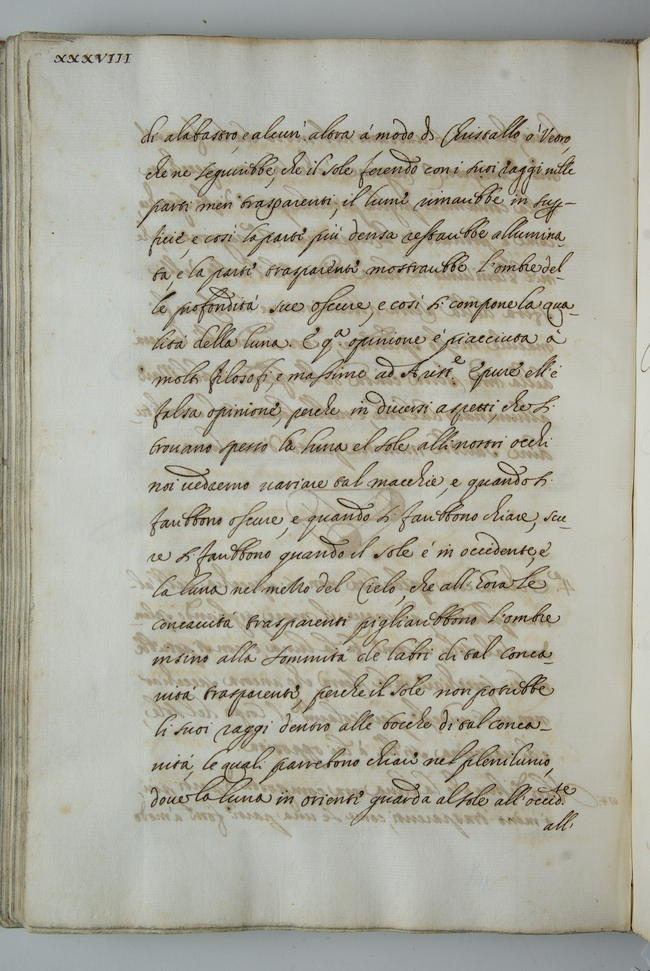 XXXVIII
di alabastro, e alcuni altra á modo di Christallo ó Vetro,
che ne seguirebbe, che il Sole ferendo con i suoi raggi nelle
parti men trasparenti, il lume rimarebbe in super-
ficie, e cosi la parte più densa restarebbe allumina-
ta, e la parte trasparente mostrarebbe l'ombre del-
le profondità sue oscure, e cosi si compone la qua-
lità della luna. E q.a opinione é piacciuta à
molti filosofi, e massime ad Arist.e E pure ell'é
falsa opinione, perche in diversi aspetti che si
trovano spesso la luna e'l sole alli nostri occhi
noi vedremo variare tal macchie, e quando si
farebbono oscure, e quando si farebbono chiare, scu-
re si farebbono quando il Sole é in occidente, e
la luna nel mezzo del Cielo, che all'hora le
concavità trasparenti pigliarebbono l'ombre
insino alla sommità de labri di tal conca-
vità trasparente, perche il sole non potrebbe
li suoi raggi dentro alle bocche di tal conca-
vità, le quali parrebono chiare nel plenilunio,
dove la luna in oriente guarda al sole all'occid.te
alli